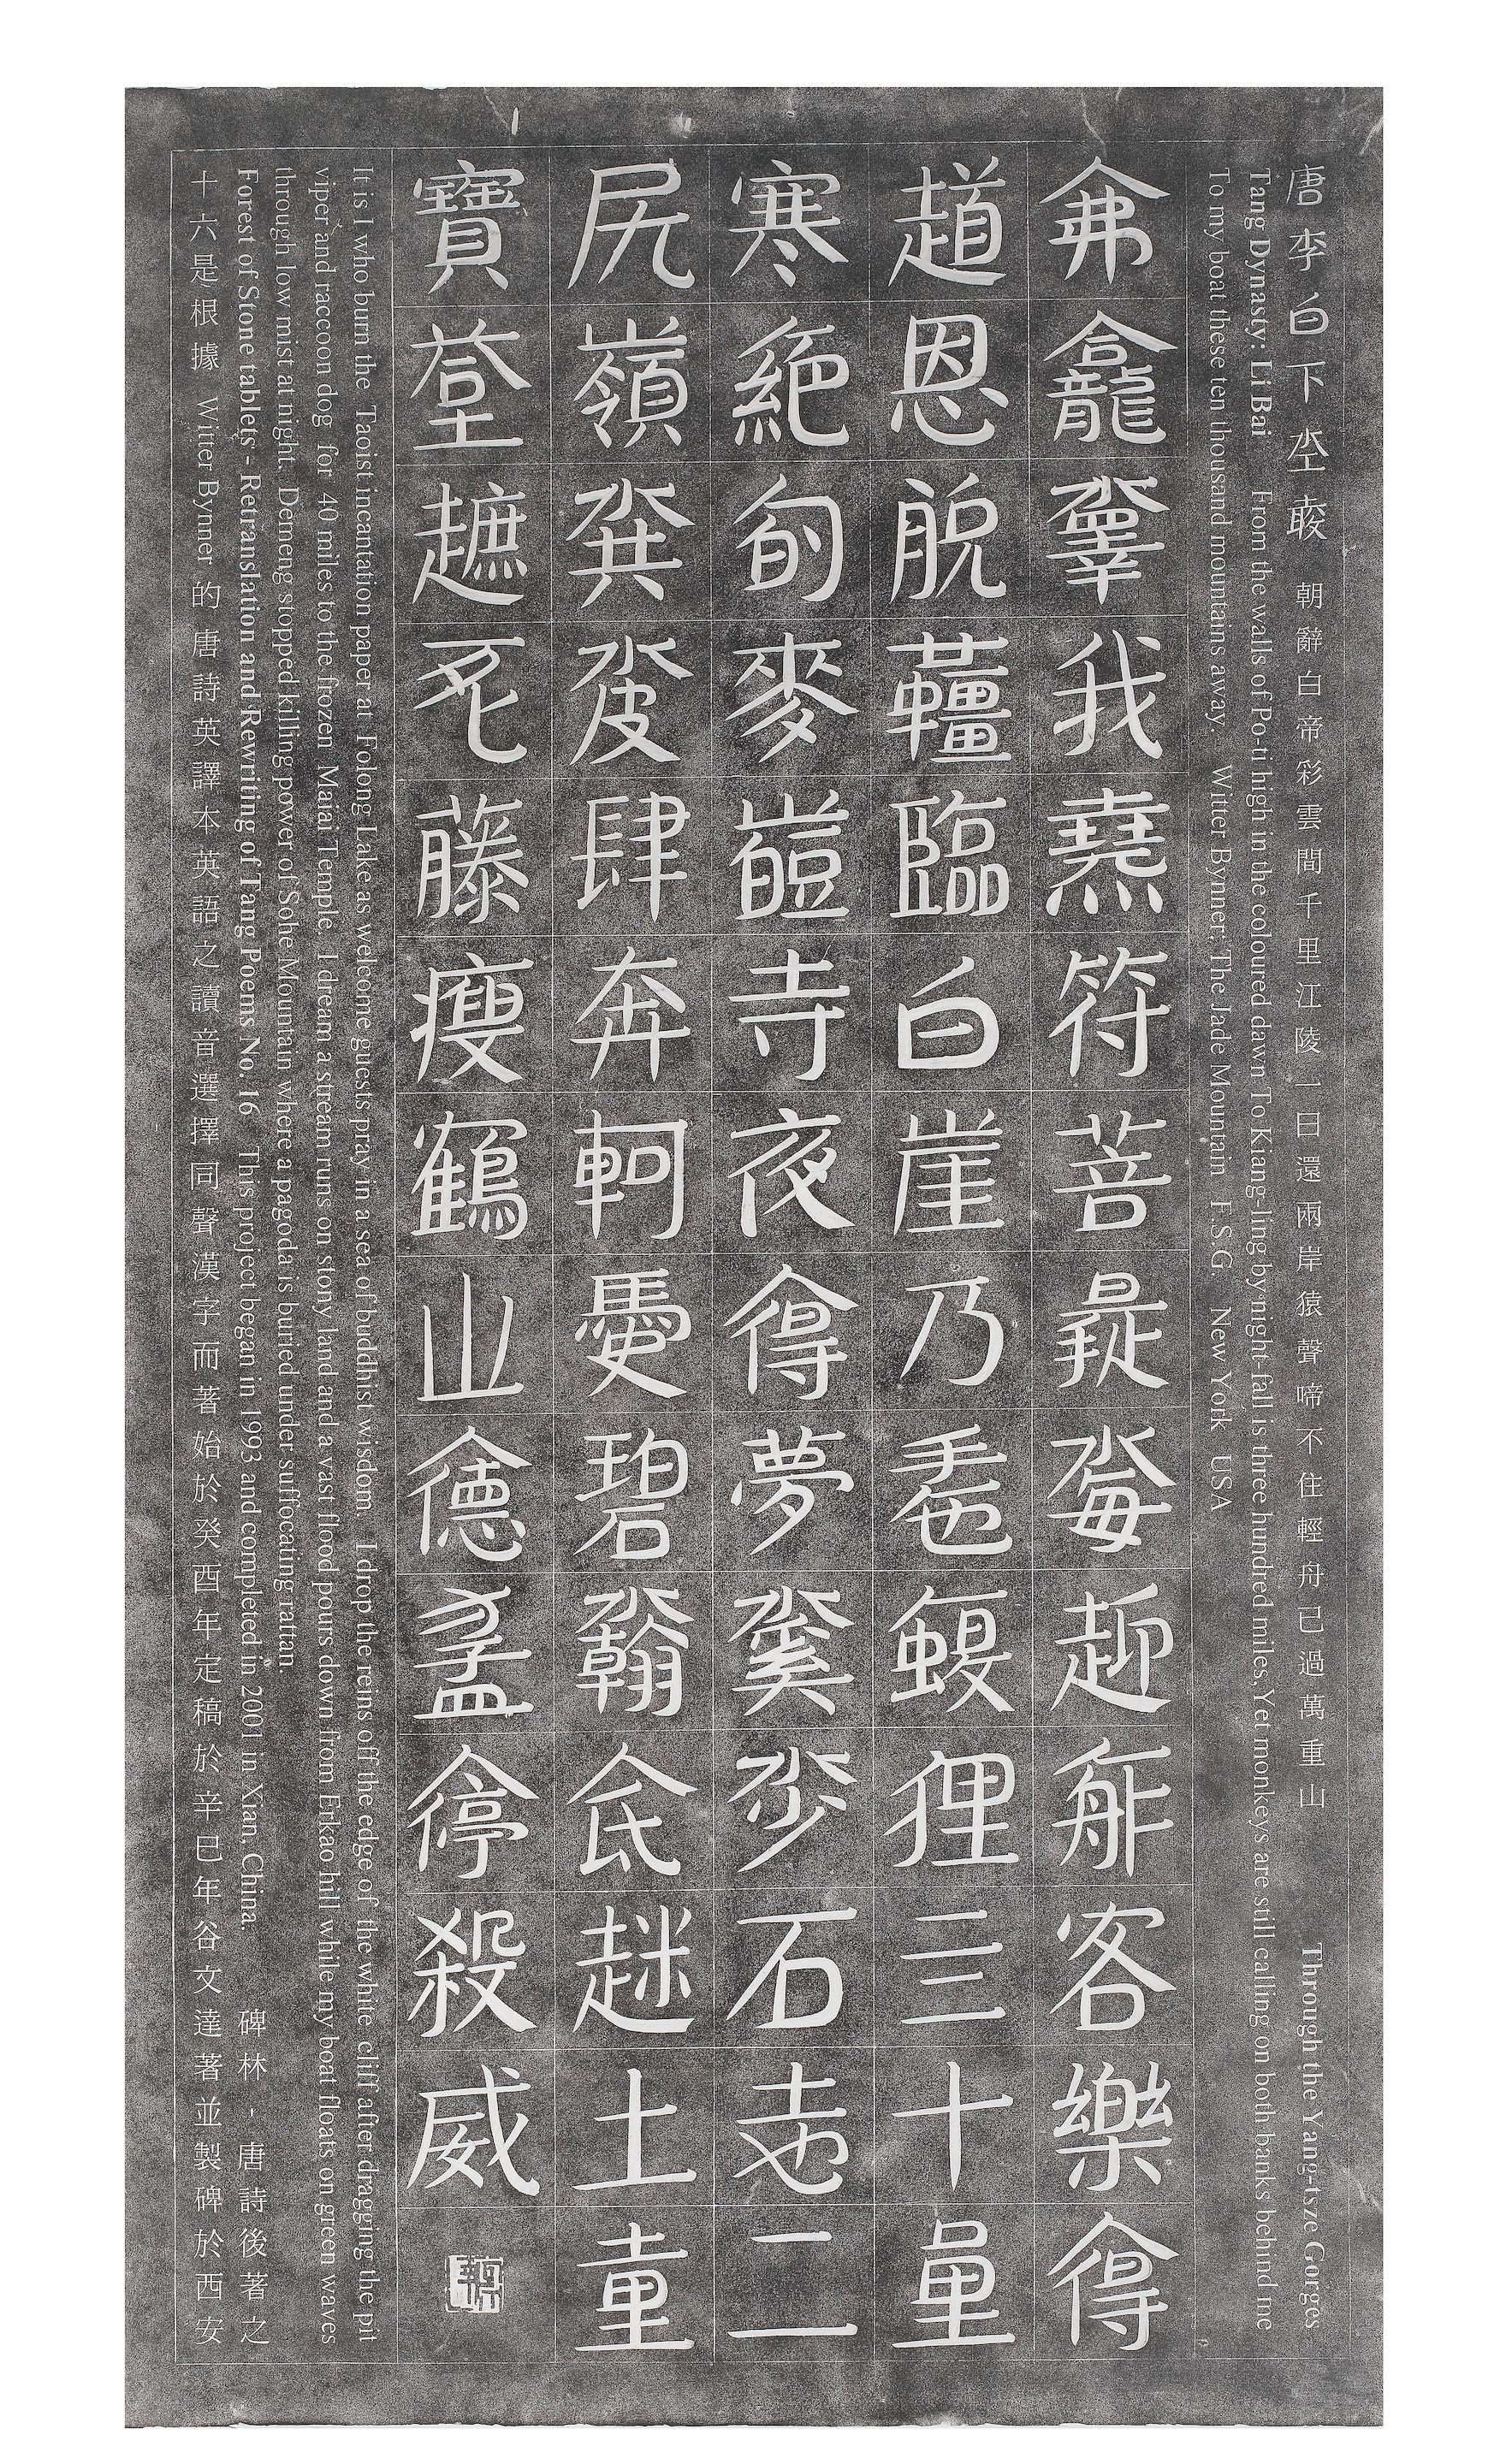 唐李白下 朝辭白帝彩雲間千里江陵一日還兩岸猿聲啼不住輕舟已過萬重山 Through the Yang-tsze Gorges
Tang Dynasty: Li Bai From the walls of Po-ti high in the coloured dawn To Kiang-ling by night-fall is three hundred miles, Yet monkeys are still calling on both banks behind me
To my boat these ten thousand mountains away. Witter Bynner: The Jade Mountain F.S.G. New York USA
我符菩客樂
恩脫韁臨白崖乃狸三十
寒絕麥皚寺夜夢石二
尻嶺肆奔軻碧土童
寶藤瘦鶴山殺威
It is I who burn the Taoist incantation paper at Folong Lake as welcome guests pray in a sea of buddhist wisdom. I drop the reins off the edge of the white cliff after dragging the pit
viper and raccoon dog for 40 miles to the frozen Maiai Temple. I dream a stream runs on stony land and a vast flood pours down from Erkao hill while my boat floats on green waves
through low mist at night. Demeng stopped killing power of Sohe Mountain where a pagoda is buried under suffocating rattan.
Forest of Stone tablets - Retranslation and Rewriting of Tang Poems No. 16 This project began in 1993 and completed in 2001 in Xian, China. 碑林 - 唐詩後著之
十六是根據 Witter Bynner 的唐詩英譯本英語之讀音選擇同聲漢字而著始於癸酉年定稿於辛巳年谷文達著並製碑於西安